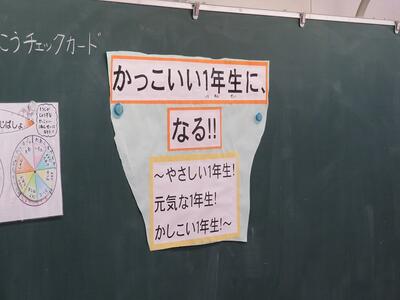 こうチェックカード
かっこいい1年生に、
なる!!
～やさしい1年生!
元気な1年生!
かしこい1年生!～
じばしょ